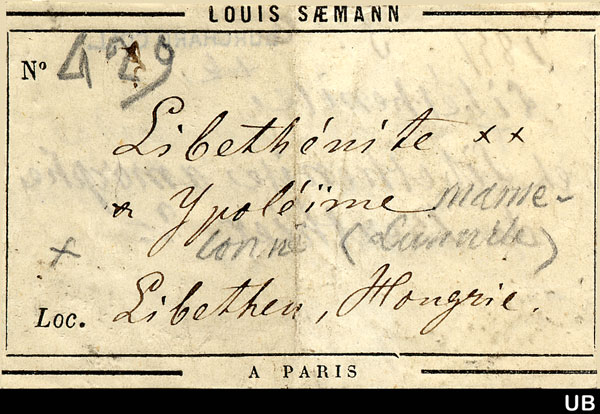 LOUIS SÆMANN
Nº 429
Libethénite ××
× Ypoléïme mame-
× lonné (Lunnite)
Loc. Libethen, Hongrie.
A PARIS
UB